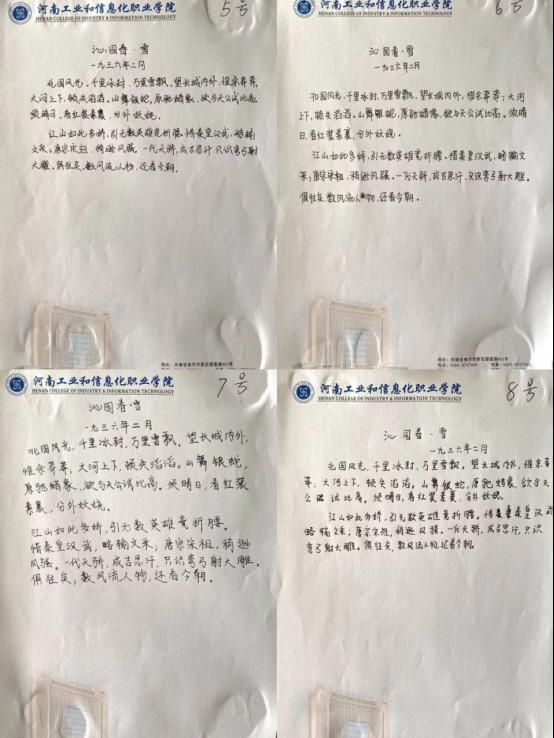 河南工业和信息化职业学院
HENAN COLLEGE OF INDUSTRY & INFORMATION TECHNOLOGY
5号
沁园春·雪
一九三六年二月
北国风光,千里冰封,万里雪飘,望长城内外,惟余莽莽,
大河上下,顿失滔滔。山舞银蛇,原驰蜡象,欲与天公试比高
须晴日,看红装素裹,分外妖娆。
江山如此多娇,引无数英雄竞折腰。惜秦皇汉武,略输
文采;唐宗宋祖,稍逊风骚。一代天骄,成吉思汗只识弯弓射
大雕,俱往矣,数风流人物,还看今朝。
河南工业和信息化职业学院
HENAN COLLEGE OF INDUSTRY & INFORMATION TECHNOLOGY
6号
沁园春·雪
一九三六年二月
北国风光,千里冰封,万里雪飘,望长城内外,惟余莽莽;大河
上下,顿失滔滔。山舞银蛇,原驰蜡象,欲与天公试比高。须晴
日,看红装素裹,分外妖娆。
江山如此多娇,引无数英雄竞折腰。惜秦皇汉武,略输文
采;唐宗宋祖,稍逊风骚。一代天骄,成吉思汗,只识弯弓射大雕。
俱往矣,数风流人物,还看今朝。
河南工业和信息化职业学院
HENAN COLLEGE OF INDUSTRY & INFORMATION TECHNOLOGY
7号
沁园春·雪
一九三六年二月
北国风光,千里冰封,万里雪飘。望长城内外,
惟余莽莽;大河上下,顿失滔滔。山舞银蛇,
原驰蜡象,欲与天公试比高。须晴日,看红装
素裹,分外妖娆。
江山如此多娇,引无数英雄竞折腰。
惜秦皇汉武,略输文采;唐宗宋祖,稍逊
风骚。一代天骄,成吉思汗,只识弯弓射大雕。
俱往矣,数风流人物,还看今朝。
河南工业和信息化职业学院
HENAN COLLEGE OF INDUSTRY & INFORMATION TECHNOLOGY
8号
沁园春·雪
一九三六年二月
北国风光,千里冰封,万里雪飘。望长城内外,惟余莽
莽;大河上下,顿失滔滔。山舞银蛇,原驰蜡象,欲与天
公试比高。须晴日,看红装素裹,分外妖娆。
江山如此多娇,引无数英雄竞折腰。惜秦皇汉武
略输文采;唐宗宋祖,稍逊风骚。一代天骄,成吉思汗,只识
弯弓射大雕。俱往矣,数风流人物还看今朝。